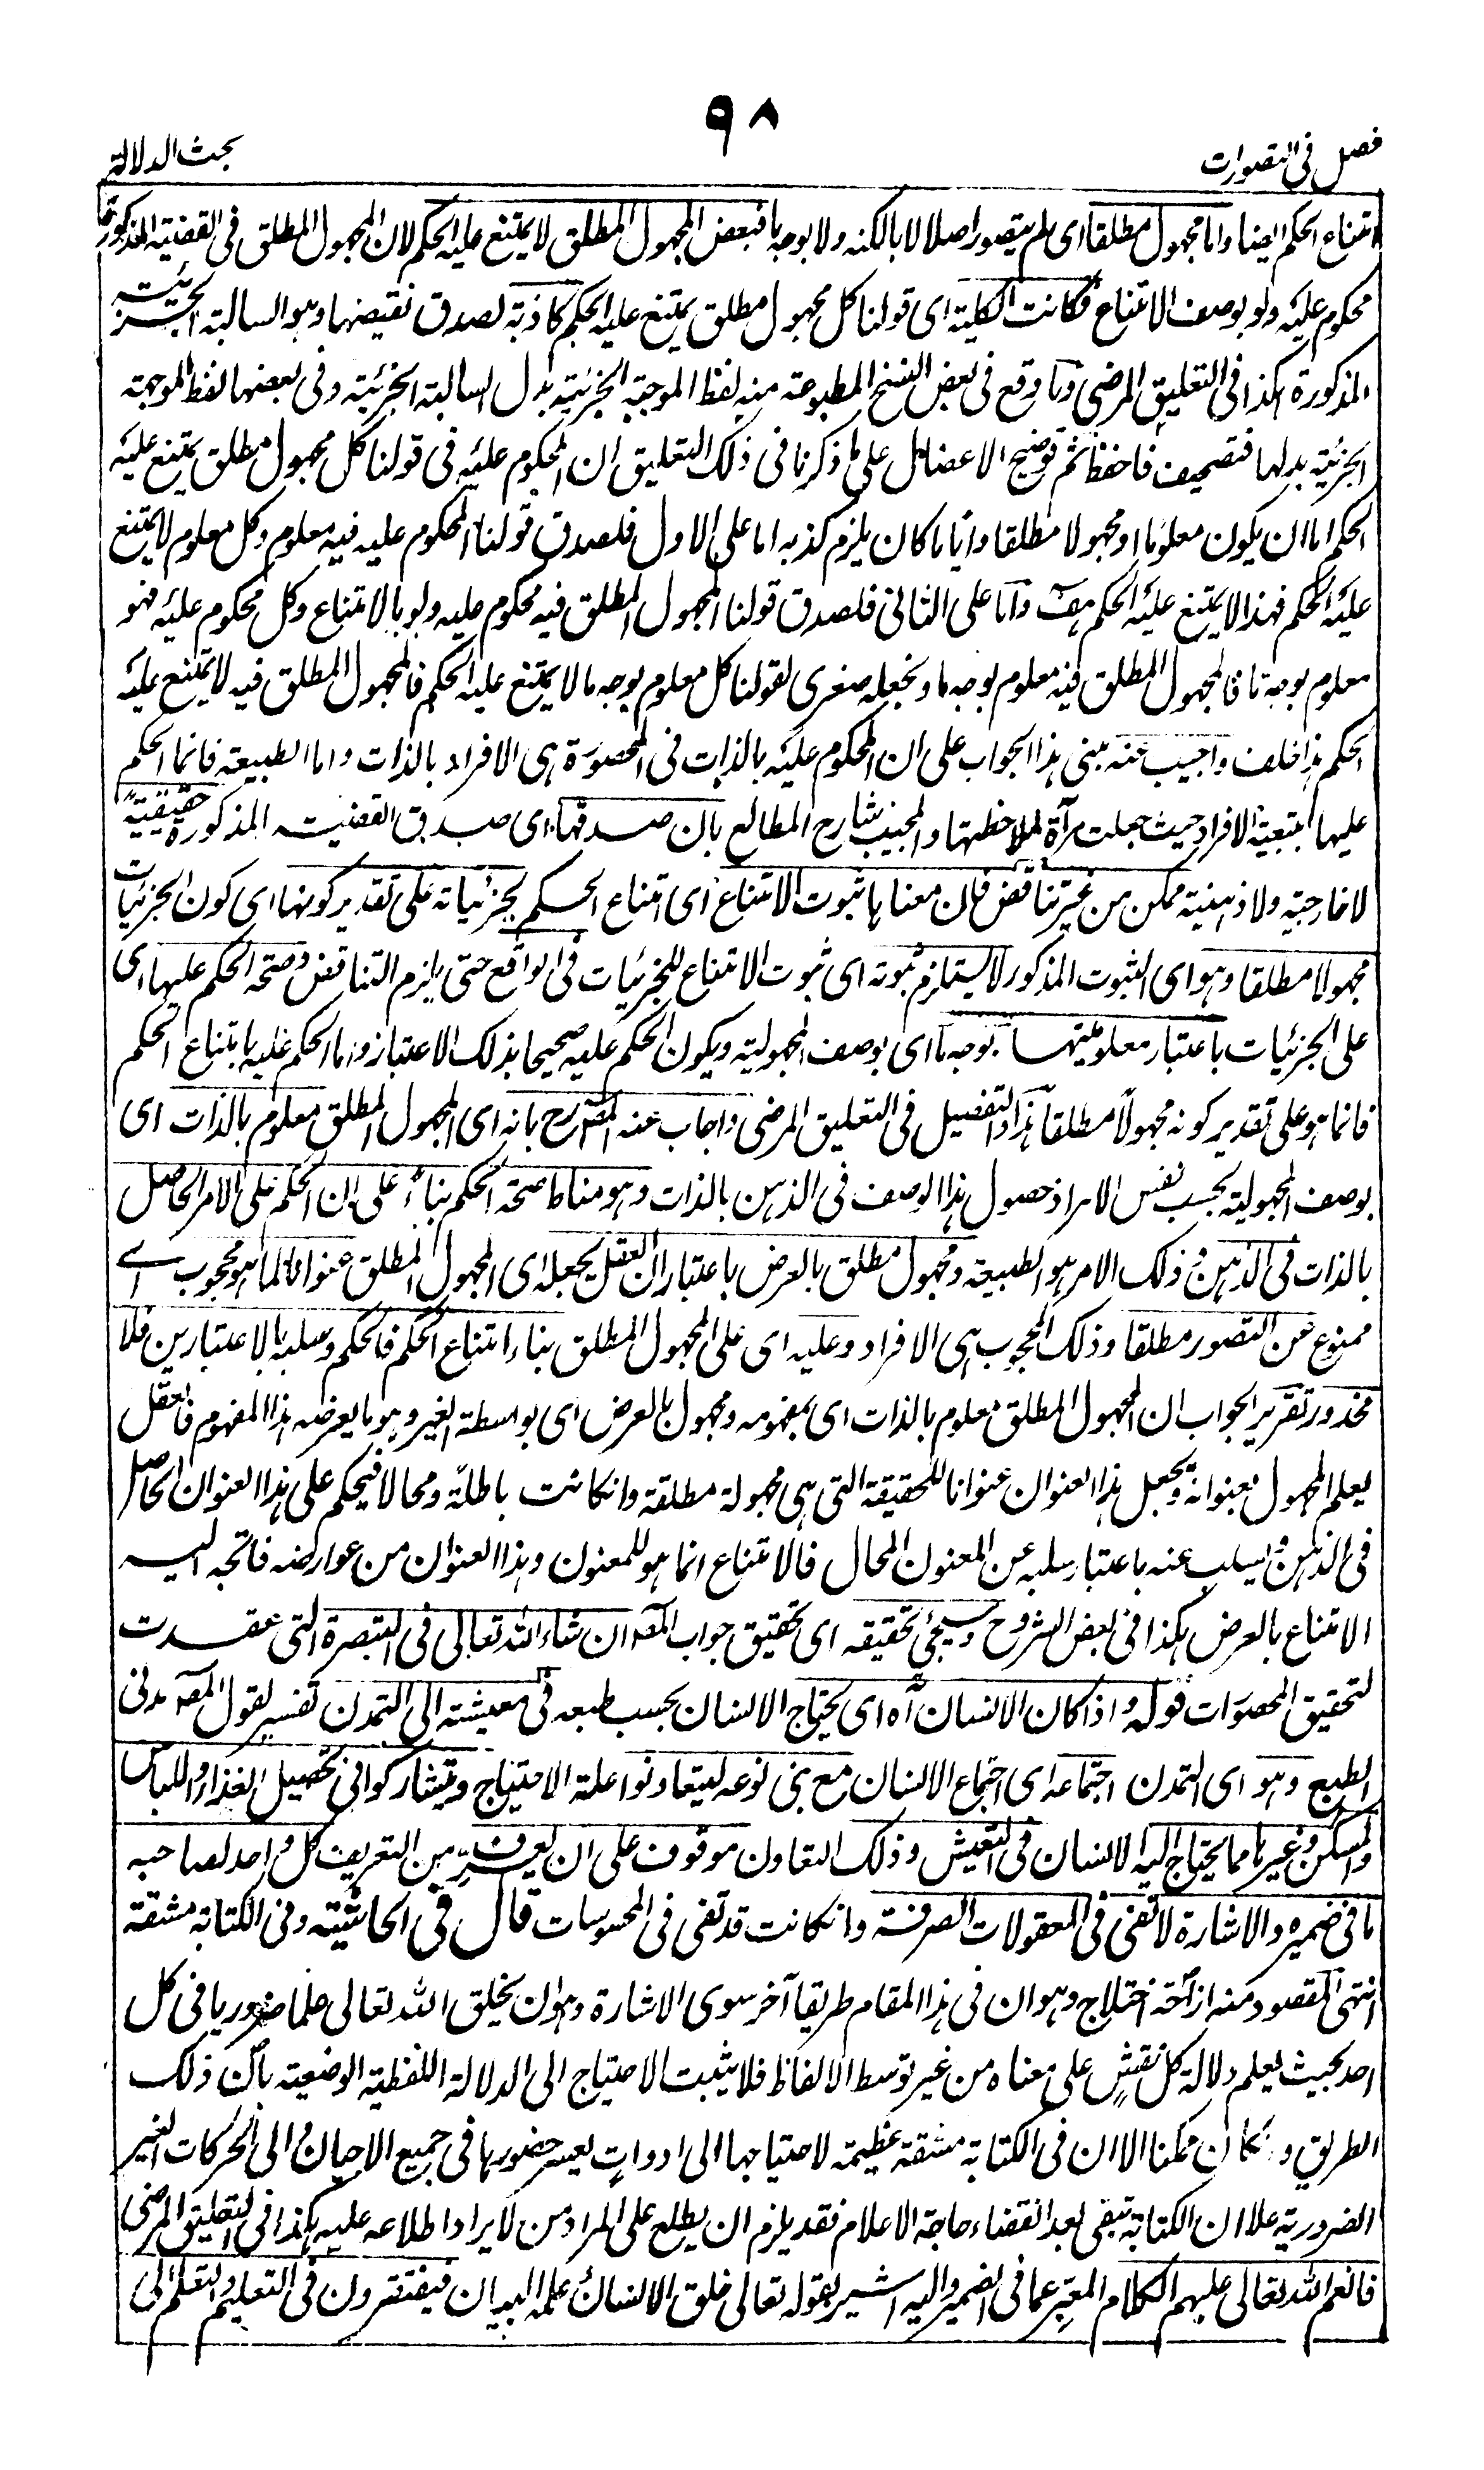 ٩٨
فصل في التصورات
بحث الدلالة
امتناع الحكم ايضا واما مجهول مطلقا اى لم يتصور اصلا لا بالكنه ولا بوجه ما فبعض المجهول المطلق لا يمتنع عليه الحكم لان المجهول المطلق فى القضية المذكورة
محكوم عليه ولو بوصف الامتناع فكانت الكلية اى قولنا كل مجهول مطلق يمتنع عليه الحكم كاذبة لصدق نقيضها وهو السالبة الجزئية
المذكورة هكذا فى التعليق المرضى وما وقع فى بعض النسخ المطبوعة منه لفظ الموجبة الجزئية بدل السالبة الجزئية وفى بعضها لفظ الموجبة
الجزئية بدلها فتصحيف فاحفظ ثم توضيح الاعضال على ما ذكرنا فى ذلك التعليق ان المحكوم عليه فى قولنا كل مجهول مطلق يمتنع عليه
الحكم اما ان يكون معلوما او مجهولا مطلقا وايا ما كان يلزم كذبه اما على الاول فلصدق قولنا المحكوم عليه فيه معلوم وكل معلوم لا يمتنع
عليه الحكم فهذا لا يمتنع عليه الحكم هف واما على الثانى فلصدق قولنا المجهول المطلق فيه محكوم عليه ولو بالامتناع وكل محكوم عليه فهو
معلوم بوجه ما فالمجهول المطلق فيه معلوم بوجه ما ونجعله صغرى لقولنا كل معلوم بوجه ما لا يمتنع عليه الحكم فالمجهول المطلق فيه لا يمتنع عليه
الحكم هذا خلف واجيب عنه مبنى هذا الجواب على ان المحكوم عليه بالذات فى المحصورة هى الافراد بالذات واما الطبيعة فانما الحكم
عليها بتبعية الافراد حيث جعلت مرآة لملاحظتها والمجيب شارح المطالع بان صدقها اى صدق القضية المذكورة حقيقية
لا خارجية ولا ذهنية ممكن من غير تناقض فان معناها ثبوت الامتناع اى امتناع الحكم لجزئياته على تقدير كونها اى كون الجزئيات
مجهولا مطلقا وهو اى الثبوت المذكور لا يستلزم ثبوته اى ثبوت الامتناع للجزئيات فى الواقع حتى يلزم التناقض وصحة الحكم عليها اى
على الجزئيات باعتبار معلوميتها بوجه ما اى بوصف المجهولية ويكون الحكم عليه صحيحا بذلك الاعتبار واما الحكم عليه بامتناع الحكم
فانما هو على تقدير كونه مجهولا مطلقا هذا والتفصيل فى التعليق المرضى واجاب عنه المصرح بانه اى المجهول المطلق معلوم بالذات اى
بوصف المجهولية بحسب نفس الامر اذ حصول هذا الوصف فى الذهن بالذات وهو مناط صحة الحكم بناء على ان الحكم على الامر الحاصل
بالذات فى الذهن وذلك الامر هو الطبيعة ومجهول مطلق بالعرض باعتبار ان العقل يجعله اى المجهول المطلق عنوانا لما هو محجوب اے
ممنوع عن التصور مطلقا وذلك المحجوب هى الافراد وعليه اى على المجهول المطلق بناء امتناع الحكم فالحكم وسلبه بالاعتبارين فلا
محذور تقرير الجواب ان المجهول المطلق معلوم بالذات اى بمفهومه ومجهول بالعرض اى بواسطة الغير وهو ما يعرضه هذا المفهوم فالعقل
يعلم المجهول بعنوانه ويجعل هذا العنوان عنوانا للحقيقة التى هى مجهولة مطلقة وانكانت باطلة ومحالا فيحكم على هذا العنوان الحاصل
فى الذهن ويسلب عنه باعتبار سلبه عن المعنون المحال فالامتناع انما هو للمعنون وهذا العنوان من عوارضه فاتجه اليه
الامتناع بالعرض هكذا فى بعض الشروح وسيجئ تحقيقه اى تحقيق جواب المصـ ان شاء الله تعالى فى التبصرة التى عقدت
لتحقيق المحصورات قوله واذا كان الانسان آه اى يحتاج الانسان بحسب طبعه فى معيشته الى التمدن تفسير لقول المصـ مدنى
الطبع وهو اى التمدن اجتماعه اى اجتماع الانسان مع بنى نوعه ليتعاونوا علة الاحتياج ويتشاركوا فى تحصيل الغذاء واللباس
والمسكن وغيرها مما يحتاج اليه الانسان فى التعيش وذلك التعاون موقوف على ان يعرف من التعريف كل واحد لصاحبه
ما فى ضميره والاشارة لا تفى فى المعقولات الصرفة وانكانت قد تفى فى المحسوسات قال فى الحاشية وفى الكتابة مشقة
انتهى المقصود منه ازاحة اختلاج وهو ان فى هذا المقام طريقا آخر سوى الاشارة وهو ان يخلق الله تعالى علما ضروريا فى كل
احد بحيث يعلم دلالة كل نقش على معناه من غير توسط الالفاظ فلا يثبت الاحتياج الى الدلالة اللفظية الوضعية بان ذلك
الطريق وان كان ممكنا الا ان فى الكتابة مشقة عظيمة لاحتياجها الى ادوات يعسر حضورها فى جميع الاحيان والى الحركات الغير
الضرورية علا ان الكتابة تبقى بعد انقضاء حاجة الاعلام فقد يلزم ان يطلع على المراد من لا يراد اطلاعه عليه هكذا فى التعليق المرضى
فانعم الله تعالى عليهم الكلام المعبر عما فى الضمير واليه اشير بقوله تعالى خلق الانسان علمه البيان فيفتقرون فى التعليم والتعلم الى